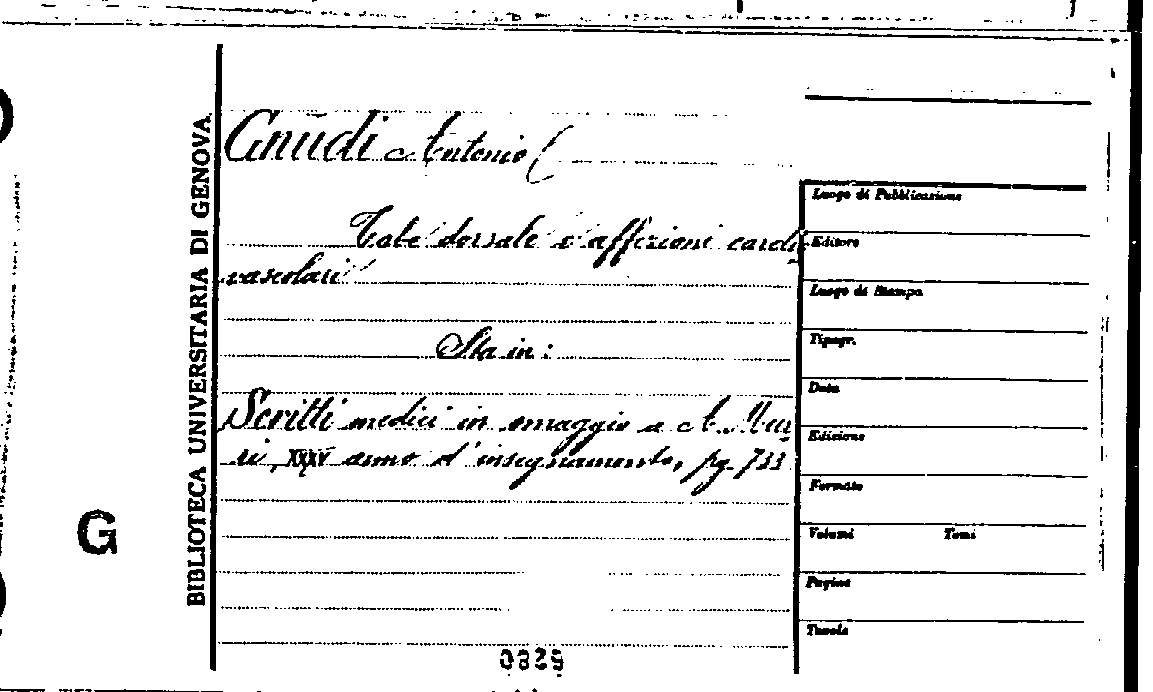 BIBLIOTECA UNIVERSITARIA DI GENOVA
G
Gnudi Antonio
Tabe dorsale e affezioni cardio-
vascolari
Sta in:
Scritti medici in omaggio a A. Mur-
ri, XXXV anno d'insegnamento, pg. 733
Luogo di Pubblicazione
Editore
Luogo di Stampa
Tipogr.
Data
Edizione
Formato
Volumi Tomi
Pagine
Tavole
0829